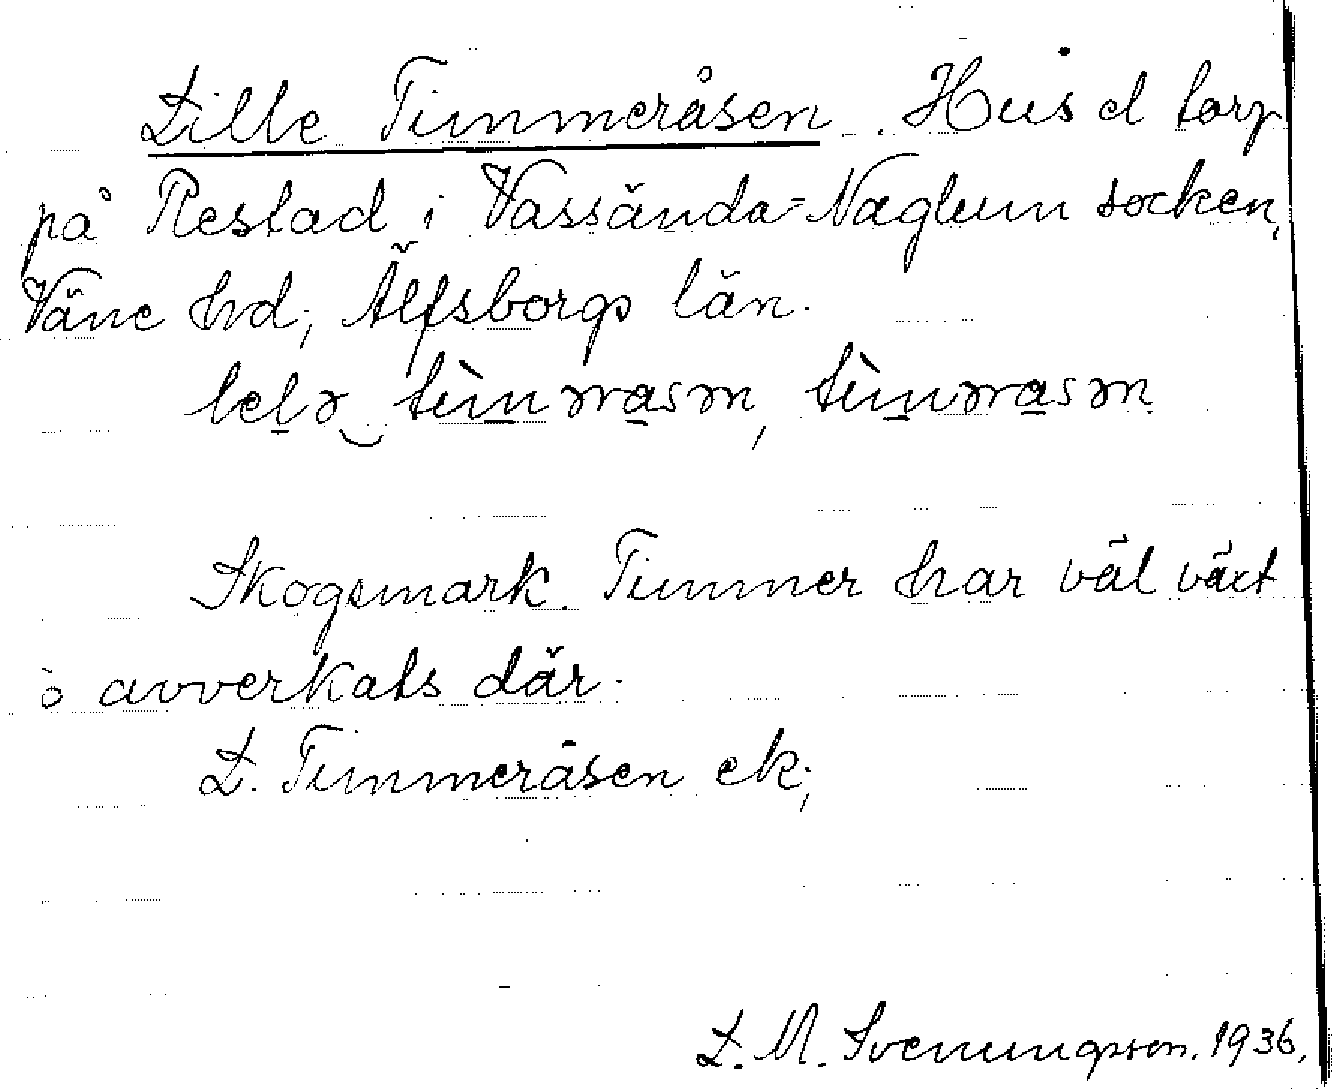 Lille Timmeråsen. Hus el torp
på Restad i Vassända-Naglum socken,
Väne hd, Älfsborgs län.
Skogsmark. Timmer har väl växt
o avverkats där.
L. Timmeråsen ek;
L. M. Svenungsson. 1936.